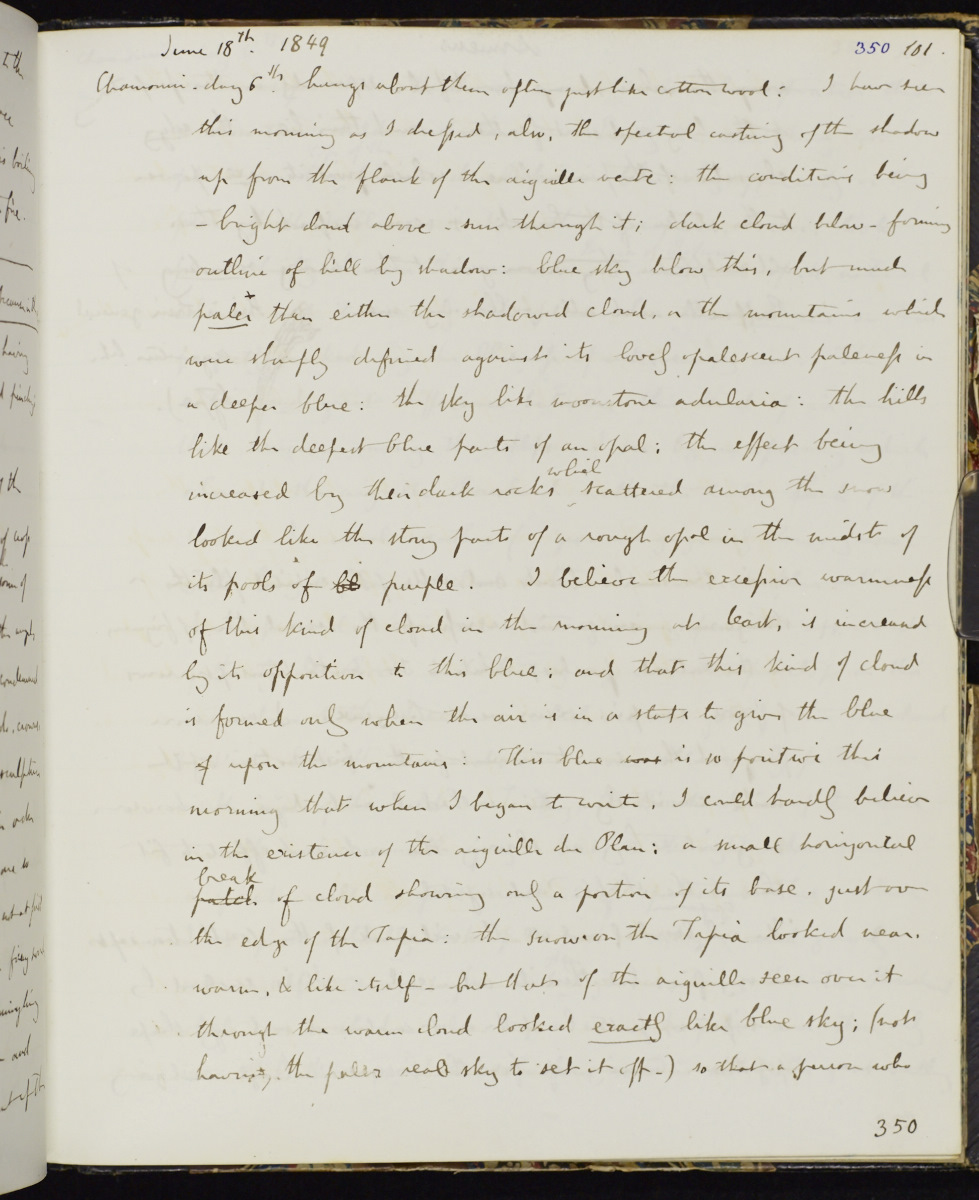 June 18th. 1849
350 101.
Chamonix. day 6th. hangs about them often just like cotton wool: I have seen
this morning as I dressed, also, the spectral casting of the shadow
up from the flank of the aiguille verte: the conditions being
- bright cloud above - sun through it; dark cloud below - forming
outline of hill by shadow: blue sky below this, but much
paler x than either the shadowed cloud, or the mountains which
were sharply defined against its lovely opalescent paleness in
a deeper blue: the sky like moonstone adularia: the hills
like the deepest blue parts of an opal; the effect being
which
increased by their dark rocks scattered among the snow
looked like the stony parts of a rough opal in the midst of
its pools of bl purple. I believe the excessive warmness
of this kind of cloud in the morning at least, is increased
by its opposition to this blue; and that this kind of cloud
is formed only when the air is in a state to give the blue
of upon the mountains: This blue was is so positive this
morning that when I began to write, I could hardly believe
in the existence of the aiguille du Plan; a small horizontal
break
patch of cloud showing only a portion of its base, just over
the edge of the Tapia: the snow on the Tapia looked near,
warm, & like itself - but that of the aiguille seen over it
through the warm cloud looked exactly like blue sky; (not
having, the paler real sky to set it off -) so that a person who
350